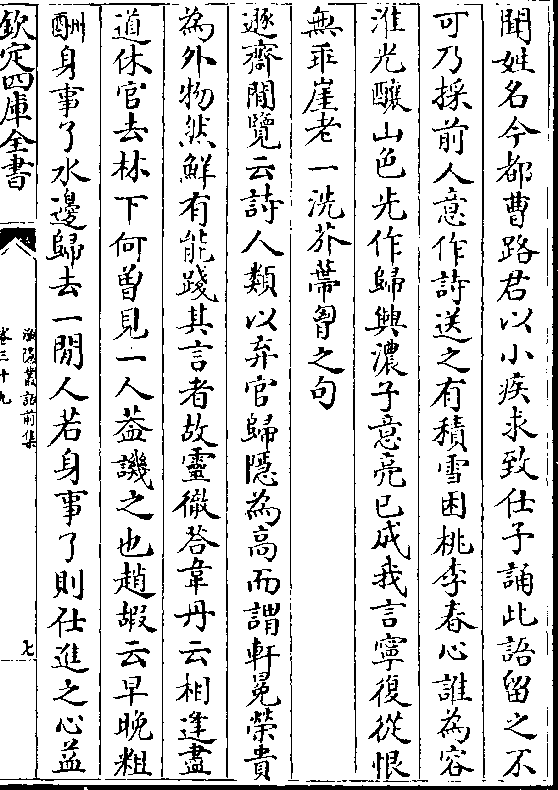 聞姓名今都曹路君以小疾求致仕子誦此語留之不
可乃採前人意作詩送之有積雪困桃李春心誰為容
淮光釀山色先作歸興濃子意亮已成我言寧復從恨
無乖崖老一洗芥蔕胷之句
遯齋閒覽云詩人類以弃官歸隱為高而謂軒冕榮貴
為外物然鮮有能踐其言者故靈徹答韋丹云相逢盡
道休官去林下何曽見一人葢譏之也趙嘏云早晚粗
酬身事了水邊歸去一閒人若身事了則仕進之心益
欽定四庫全書
漁隱叢話前集
卷三十九
七